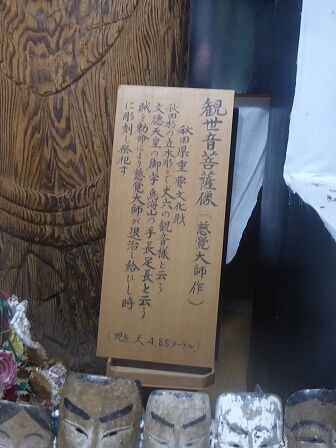 観世音菩薩像(慈覚大師作)
秋田県重要文化財
秋田杉の立木彫りで丈六の観音様と云う
文徳天皇の御宇鳥海山の手長足長と云う
賊を勅命により慈覚大師が退治し給ひし時
に彫刻し祭祀す
(現在 丈4.85メートル)